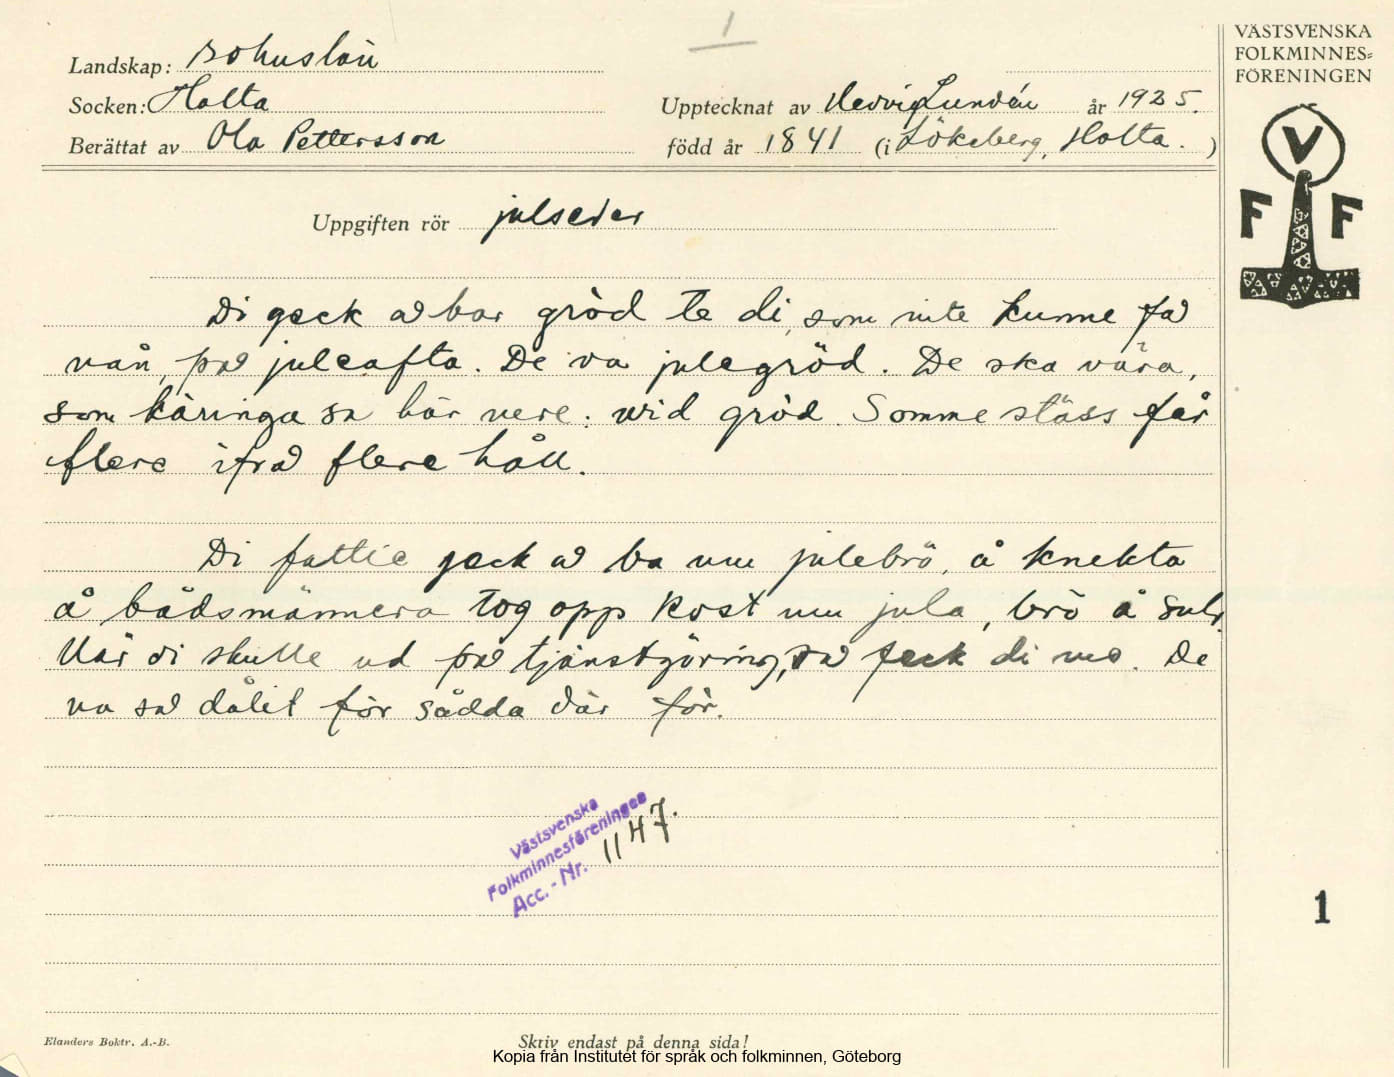 1
VÄSTSVENSKA
FOLKMINNES=
FÖRENINGEN
Landskap: Bohuslän
Socken: Holta
Upptecknat av Hedvig Lundén år 1925.
Berättat av Ola Pettersson
född år 1841 (i Lökeberg, Holta. )
V
F F
Uppgiften rör julseder
Di geck å bar gröd te di, som inte kunne få
nån, på juleafta. De va julegröd. De ska vara,
som käringa sa här vere: vid gröd. Somme stäss får
flere ifrå flere håll.
Di fattie geck å ba um julebrö, å knekta
å bådsmännera tog opp kost um jula, brö å sul.
När di skulle ud på tjänstgöring, så feck di me. De
va så dålit för sådda där för.
Västsvenska
Folkminnesföreningen
Acc. - Nr. 1147.
1
Elanders Boktr. A.-B.
Skriv endast på denna sida!
Kopia från Institutet för språk och folkminnen, Göteborg